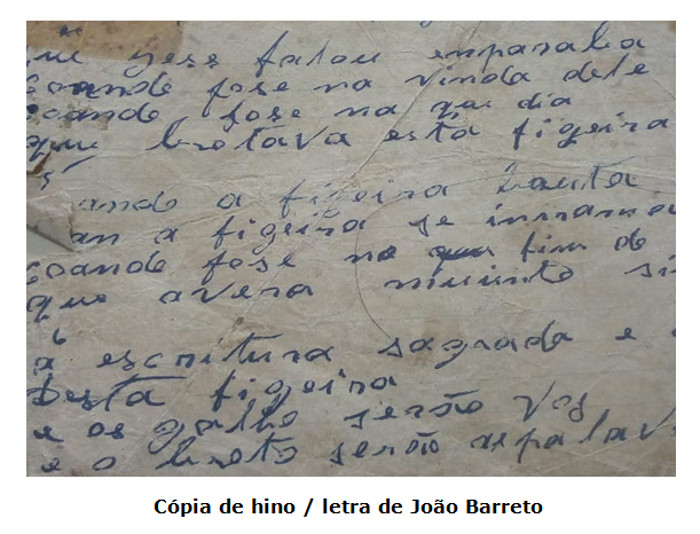 que yess falou emparaba
coande fose na vinda dele
coande fose na que dia
que brotava esta figeira
5
ando a figeira brauta
an a figeira se inrrama
coande fose no fim do
que avera muinto si
6
a escritura sagrada e
desta figeira
e os galho serão vos
e o broto serão as palav
Cópia de hino / letra de João Barreto